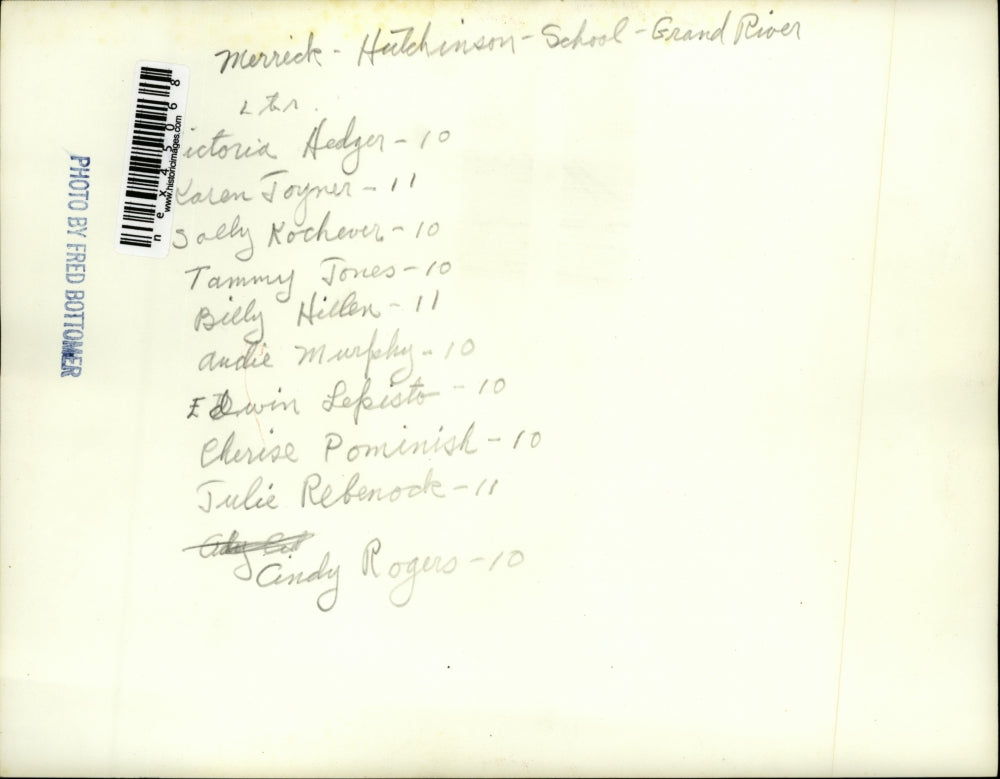 Merrick - Hutchinson - School - Grand River
L to r.
ictoria Hedger - 10
Karen Joyner - 11
Sally Kochever - 10
Tammy Jones - 10
Billy Hillen - 11
Audie Murphy - 10
Edwin Lepisto - 10
Cherise Pominish - 10
Julie Rebenock - 11
Cindy Rogers - 10
nex45068
www.historicimages.com
PHOTO BY FRED BOTTOMER